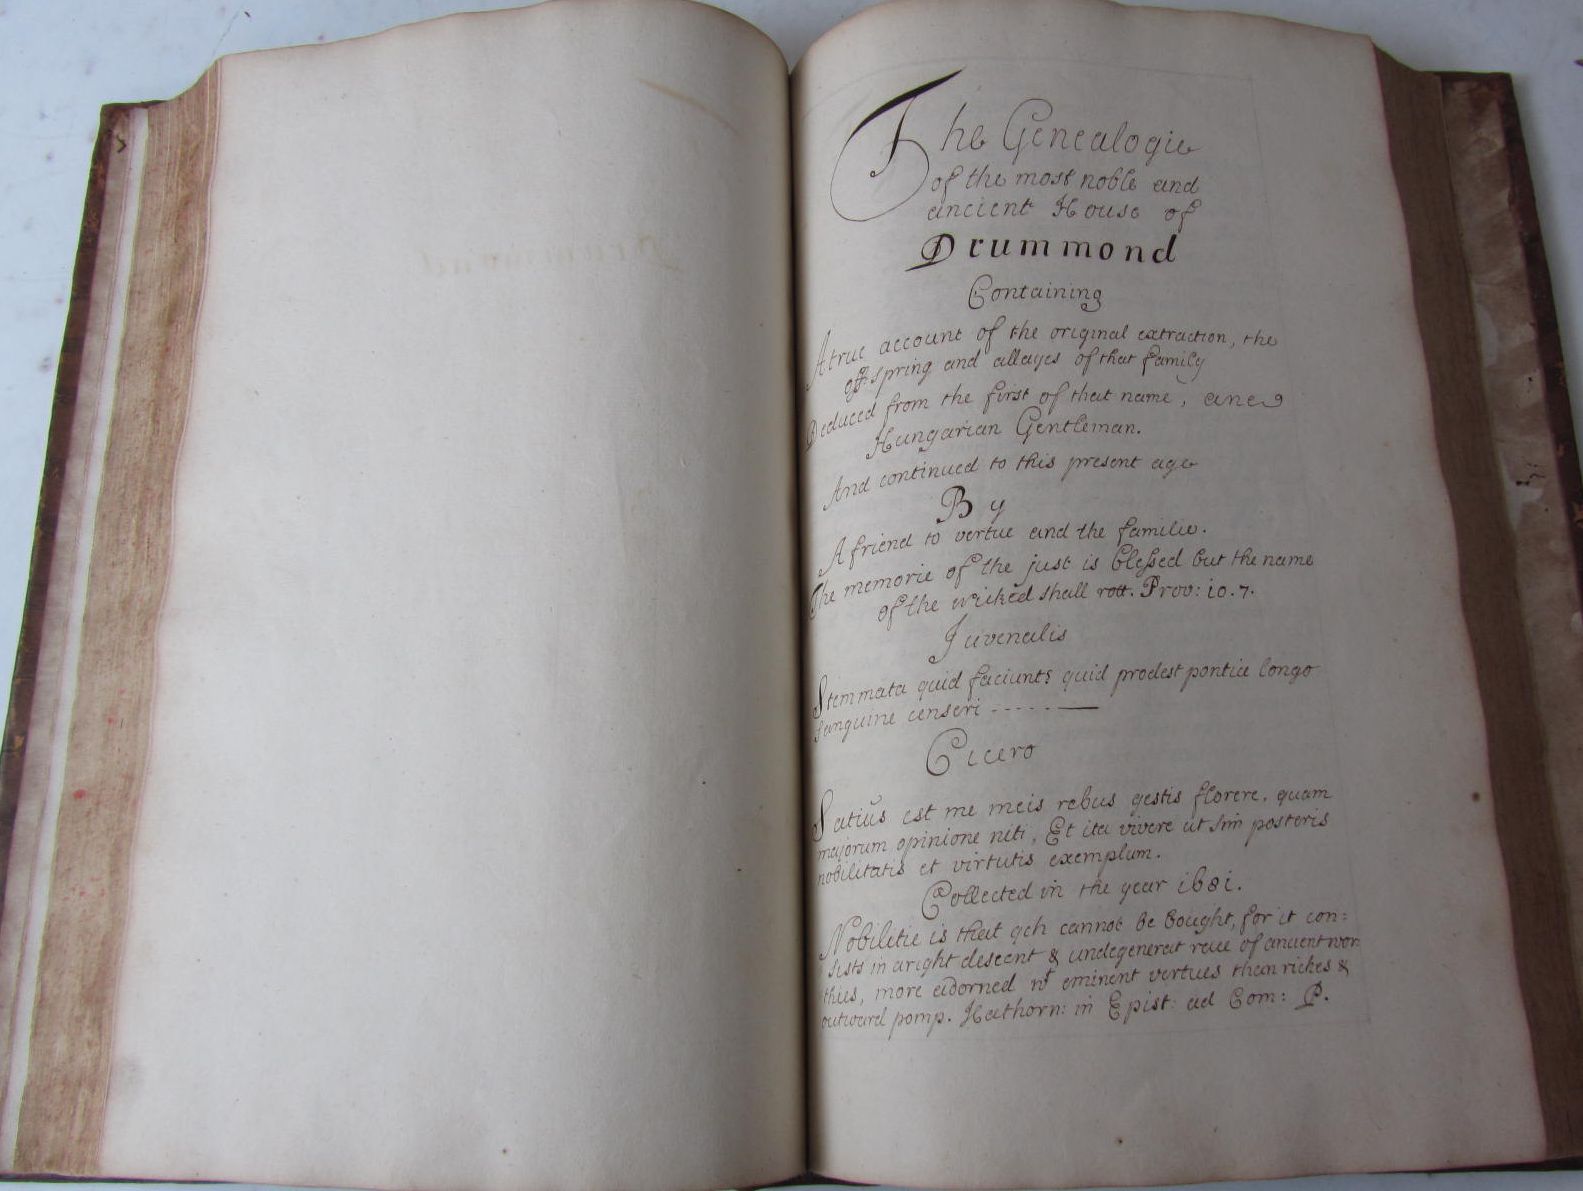 The Genealogie
of the most noble and
ancient House of
Drummond
Containing
A true account of the original extraction, the
off-spring and allayes of that family
Deduced from the first of that name, ane
Hungarian Gentleman.
And continued to this present age
By
A friend to vertue and the familie.
The memorie of the just is blessed but the name
of the wicked shall rott. Prov: 10. 7.
Juvenalis
Stemmata quid faciunt? quid prodest pontice longo
sanguine censeri
Cicero
Satius est me meis rebus gestis florere, quam
majorum opinione niti, Et ita vivere ut sim posteris
nobilitatis et virtutis exemplum.
Collected in the year 1681.
Nobilitie is that qch cannot be bought, for it con:
sists in aright descent & undegenerat race of ancient wor:
thies, more adorned wt eminent vertues than riches &
outward pomp. Hathorn: in Epist: ad Com: P.